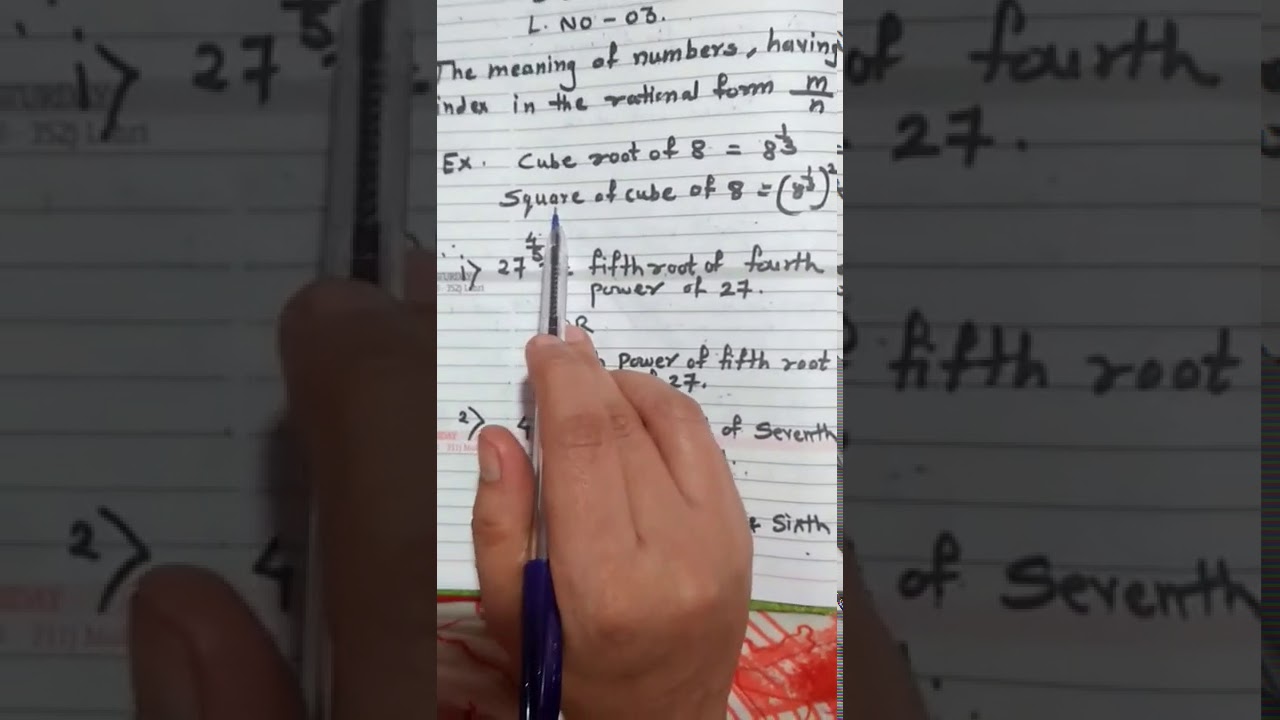 L. NO - 03.
The meaning of numbers, having
index in the rational form m/n
Ex. Cube root of 8 = 8^1/3 =
Square of cube of 8 = (8^1/3)^2
i> 27^4/5 = fifth root of fourth
power of 27.
OR
power of fifth root
27.
2> 4 of Seventh
Sixth